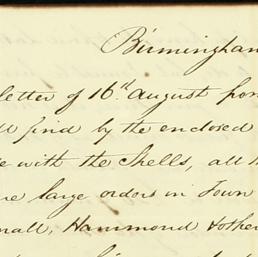 Birmingham
letter of 16th August from
find by the enclosed
with the Shells, all
large orders in Town
Hammond &other